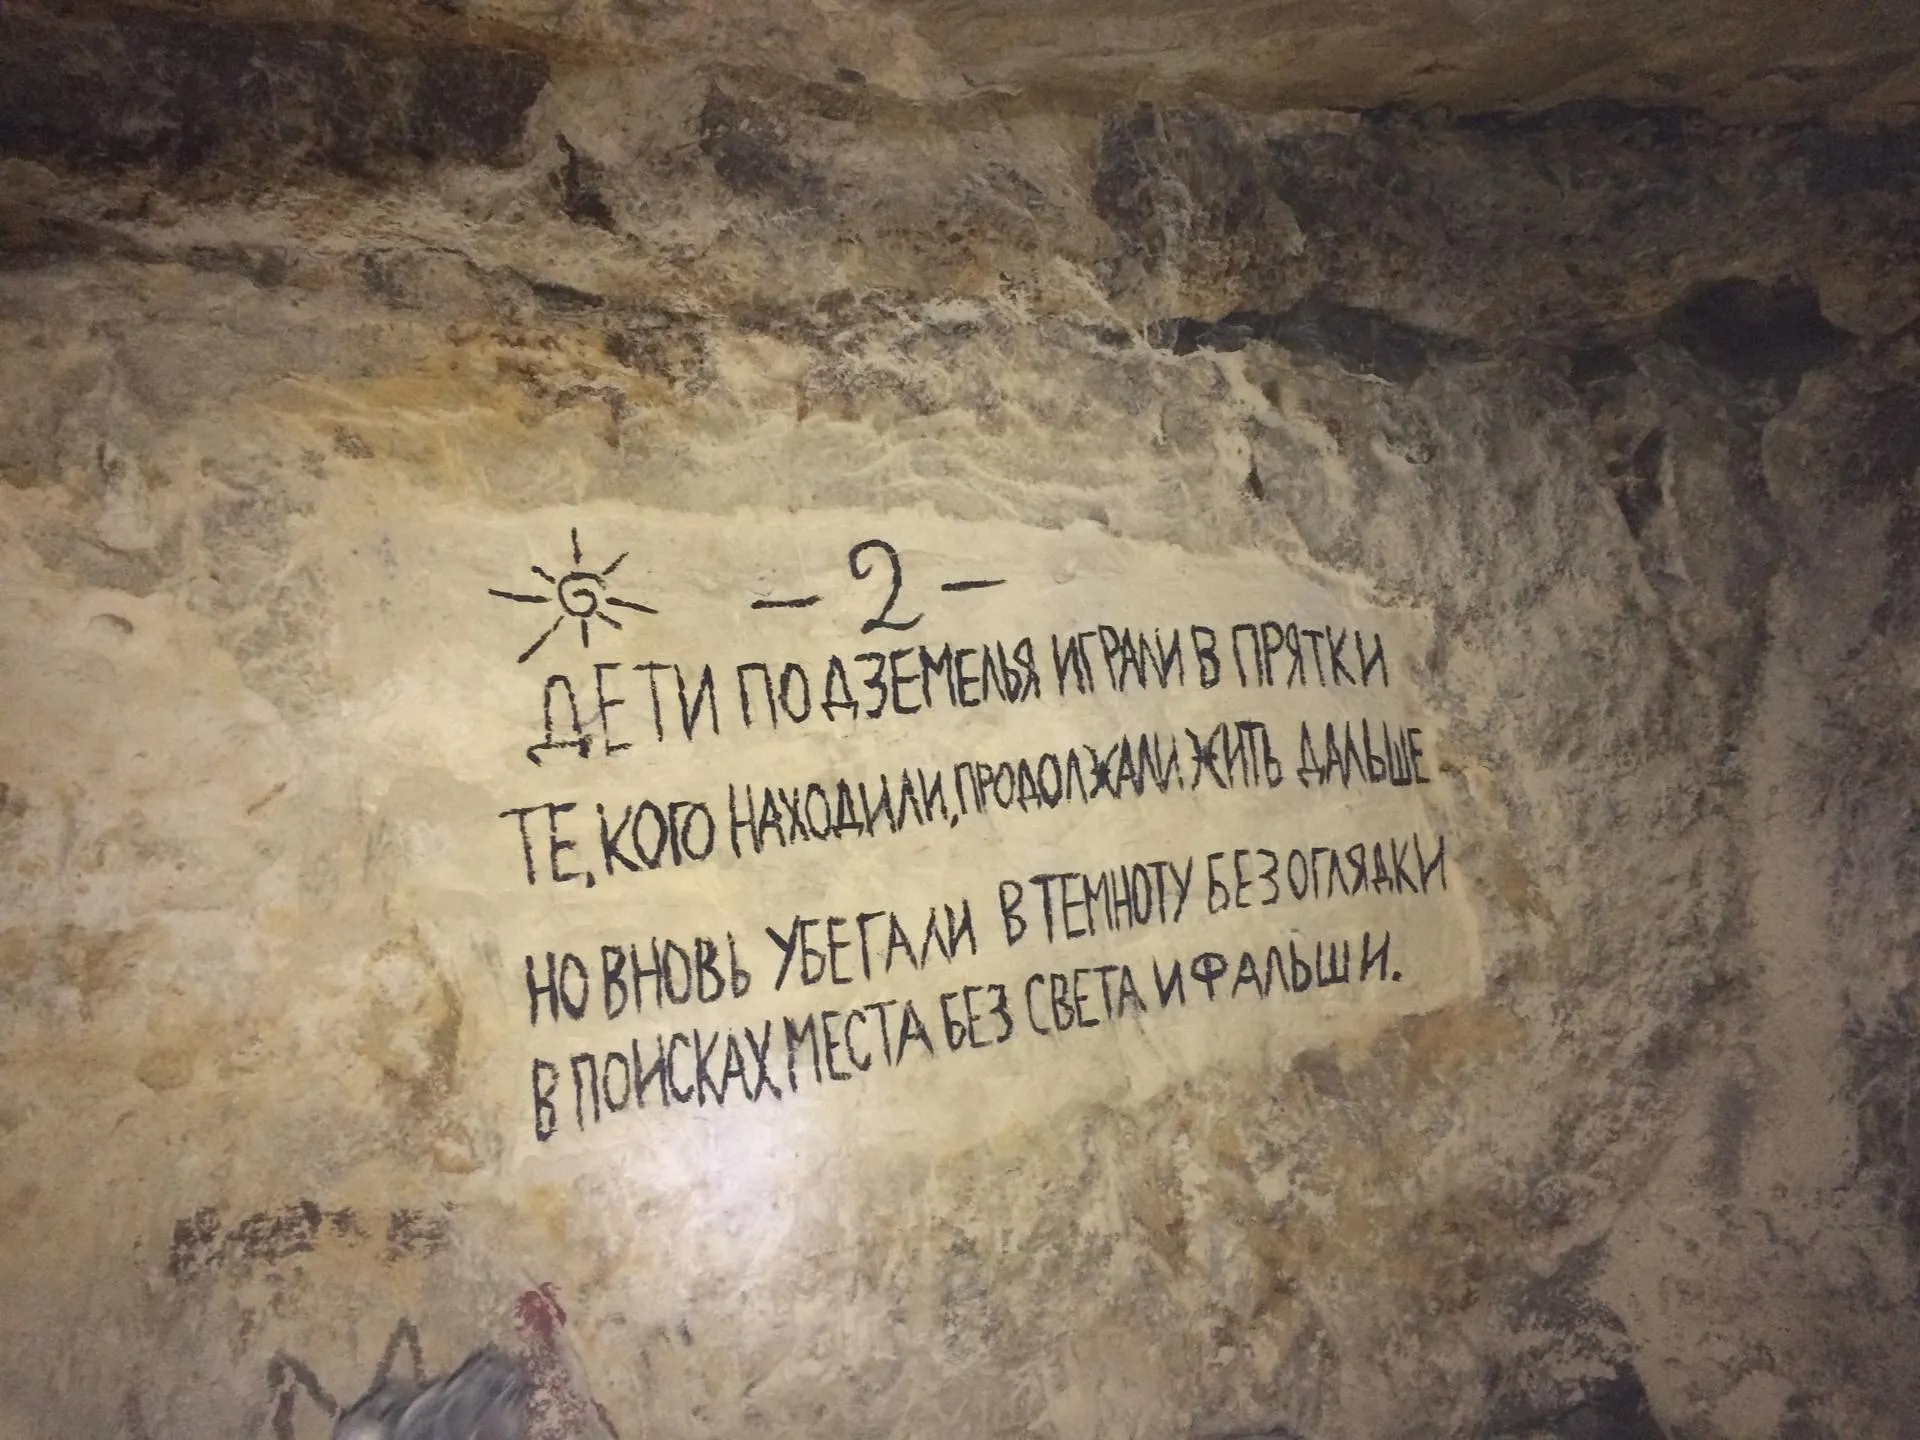 - 2 -
ДЕТИ ПОДЗЕМЕЛЬЯ ИГРАЛИ В ПРЯТКИ
ТЕ, КОГО НАХОДИЛИ, ПРОДОЛЖАЛИ ЖИТЬ ДАЛЬШЕ
НО ВНОВЬ УБЕГАЛИ В ТЕМНОТУ БЕЗ ОГЛЯДКИ
В ПОИСКАХ МЕСТА БЕЗ СВЕТА И ФАЛЬШИ.